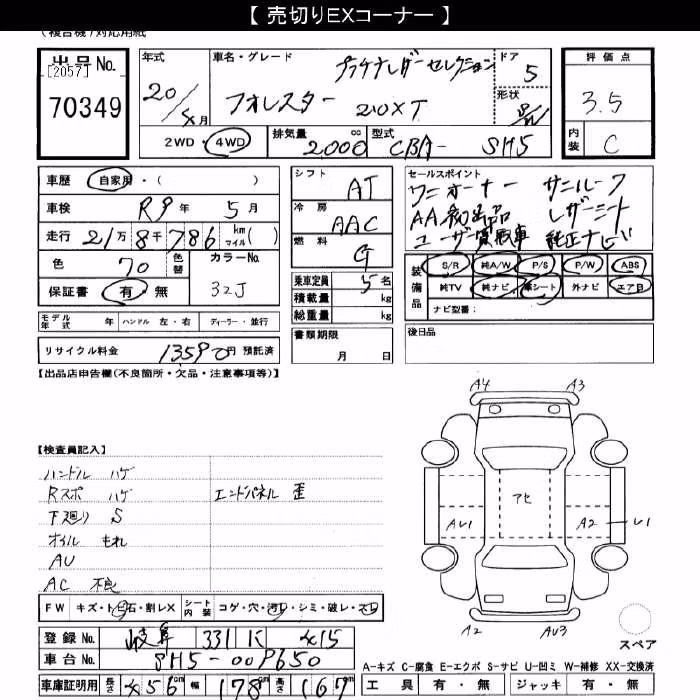 【 売切りEXコーナー 】
(複合機)対応用紙
出品No.
[2057]
70349
年式
20/ 月
車名・グレード
プラチナレザーセレクション
フォレスター 2.0XT
ドア
5
形状
S/W
評価点
3.5
内装
C
2WD・4WD
排気量 cc
2000
型式
CBA- SH5
車歴 自家用・( )
車検 R9年 5月
走行 21万8千786 km マイル( )
色 70 色替
カラーNo.
32J
保証書 有・無
シフト
AT
冷房
AAC
燃料
G
乗車定員 5名
積載量 kg
総重量 kg
書類期限
月 日
セールスポイント
ワンオーナー サンルーフ
AA初出品 レザーシート
ユーザー買取車 純正ナビ
装備品
S/R 純A/W P/S P/W ABS
純TV 純ナビ 革シート 外ナビ エアB
ナビ型番:
後日品
モデル年式 年 ハンドル 左・右 ディーラー・並行
リサイクル料金 13590円 預託済
【出品店申告欄(不良箇所・欠品・注意事項等)】
【検査員記入】
ハンドル ハゲ
Rスポ ハゲ エンドパネル 歪
下廻り S
オイル もれ
AU
AC 不良
FW キズ・トビ石・割レX シート内装 コゲ・穴・汚レ・シミ・破レ・スレ
登録No. 岐阜 331 415
車台No. SH5-009650
車庫証明用 長さ 456cm 幅 178cm 高さ 167cm
A4 A3
アセ
AU1 A2 U1
A2 AU3
スペア
A-キズ C-腐食 E-エクボ S-サビ U-凹ミ W-補修 XX-交換済
工具 有・無 ジャッキ 有・無